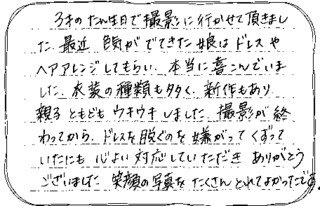 3才のたん生日で撮影に行かせて頂きまし
た。最近、自我がでてきた娘はドレスや
ヘアアレンジしてもらい、本当に喜こんでいま
した。衣装の種類も多く、新作もあり
親子ともどもウキウキしました。撮影が終
わってから、ドレスを脱ぐのを嫌がってくずって
いたにも心よい対応していただき ありがとう
ございました。笑顔の写真をたくさんとれてよかったです。